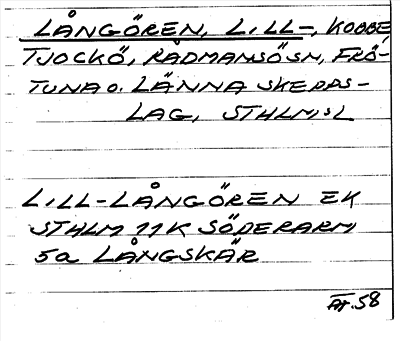 LÅNGÖREN, LILL-, KOBBE,
TJOCKÖ, RÅDMANSÖSN, FRÖ-
TUNA O. LÄNNA SKEPPS-
LAG, STHLMSL
LILL-LÅNGÖREN EK
STHLM 11K SÖDERARM
5a LÅNGSKÄR
58